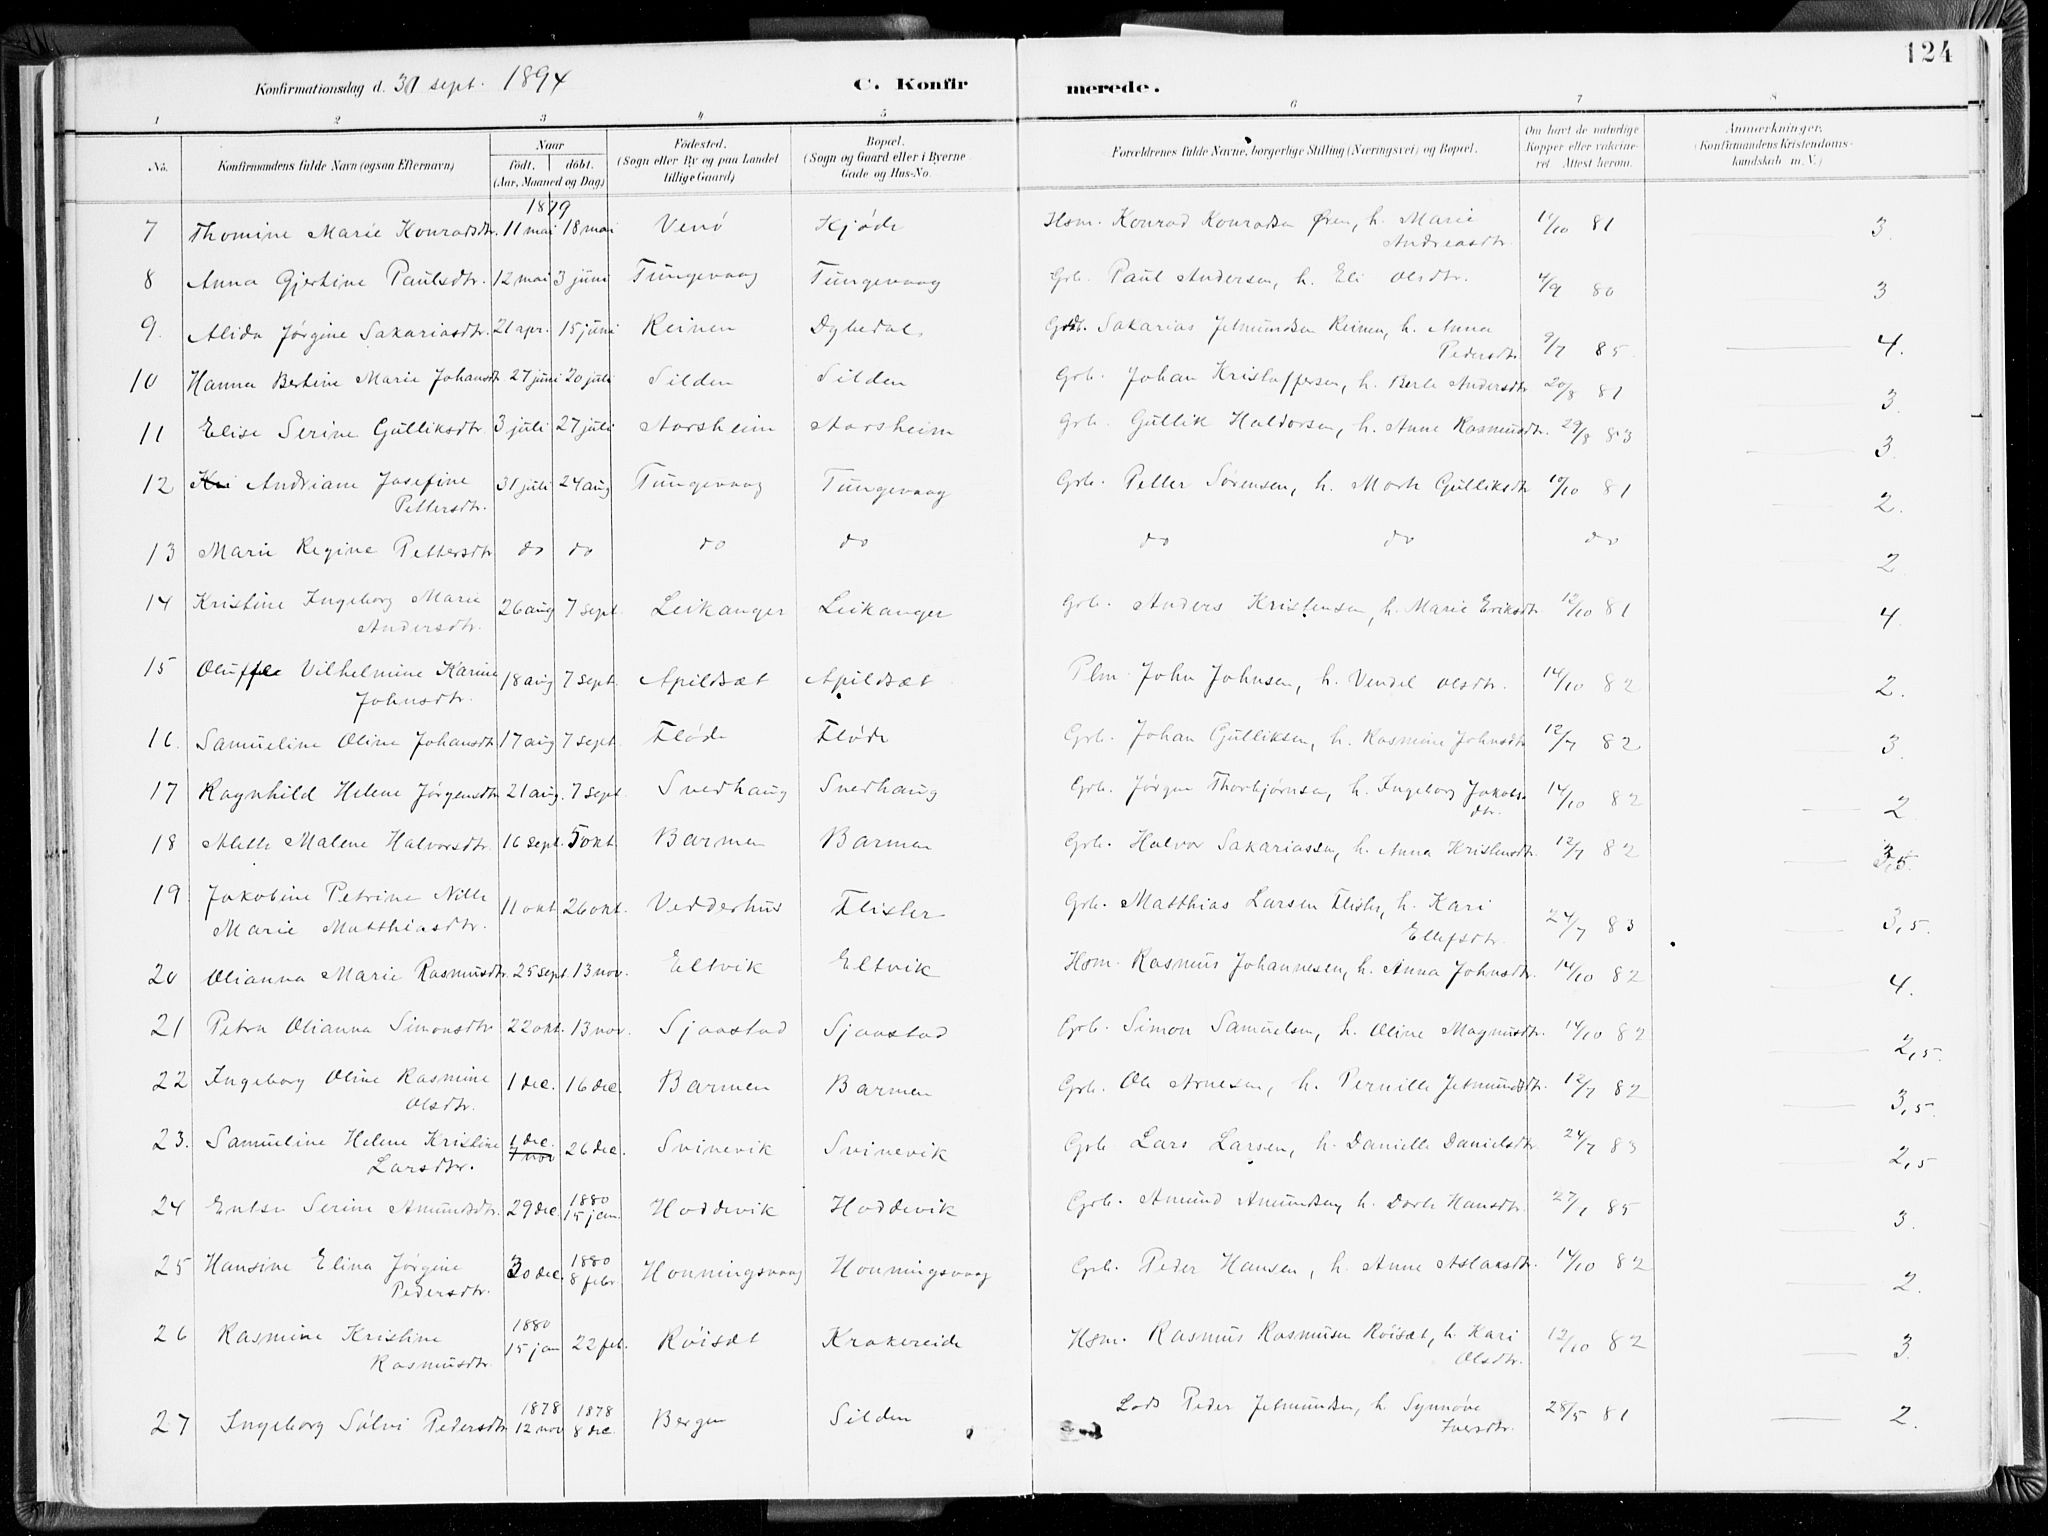 124
Konfirmationsdag d. 30 sept. 1894 C. Konfirmerede.
1 2 3 4 5 6 7 8
No. Konfirmandens fulde Navn (ogsaa Efternavn) Naar født. døbt. (Aar, Maaned og Dag) Fødested. (Sogn eller By og paa Landet tillige Gaard) Bopæl. (Sogn og Gaard eller i Byerne Gade og Hus-No. Forældrenes fulde Navne, borgerlige Stilling (Næringsvei) og Bopæl. Om havt de naturlige Kopper eller vaccineret. Attest herom. Anmerkninger. (Konfirmandens Kristendomskundskab m. V.)
1879
7 Thomine Marie Konradsdtr. 11 mai 18 mai Venø Kjøde Hsm. Konrad Konradsen Øren, h. Marie Andreasdtr. 11/10 81 3.
8 Anna Gjertine Paulsdtr. 12 mai 3 juni Tungevaag Tungevaag Grb. Paul Andersen, h. Eli Olsdtr. 4/9 80 3
9. Alida Jørgine Sakariasdtr. 21 apr. 15 juni Reinen Dybedal Sakarias Jetmundsen Reinen, h. Anna Pedersdtr. 9/7 85. 4.
10 Hanna Bertine Marie Johansdtr 27 juni 20 juli Silden Silden Grb. Johan Kristoffersen, h. Berte Andersdtr 20/8 81 3.
11 Elise Serine Gulliksdtr 3 juli 27 juli Aarsheim Aarsheim Grb. Gullik Haldorsen, h. Anne Rasmusdtr. 29/8 83 3.
12 Andriane Josefine Pettersdtr. 31 juli 24 aug Tungevaag Tungevaag Grb. Petter Sørensen, h. Marte Gulliksdtr 10/10 81 2.
13 Marie Regine Pettersdtr do do do do do do do 2.
14 Kristine Ingeborg Marie Andersdtr. 26 aug 7 sept. Leikanger Leikanger Grb. Anders Kristensen, h. Marie Eriksdtr 12/10 81 4.
15 Vilhelmine Karine Johnsdtr. 18 aug 7 sept. Apildsæt Apildsæt Plm. John Johnsen, h. Vendel Olsdtr. 14/10 82 2.
16. Samueline Oline Johansdtr 17 aug 7 sept. Fløde Fløde Grb. Johan Gulliksen, h. Rasmine Johnsdtr 12/7 82 3.
17 Ragnhild Helene Jørgensdtr 21 aug. 7 sept. Snedhaug Snedhaug Grb. Jørgen Thorbjørnsen, h. Ingeborg Jakobsdtr. 14/10 82 2.
18 Malene Halvorsdtr. 16 sept. 5 okt. Barmen Barmen Grb. Halvor Sakariassen, h. Anna Kristensdtr. 12/7 82 3,5.
19 Jakobine Petrine Nille Marie Matthiasdtr. 11 okt 26 okt. Vedderhus Flister Grb. Matthias Larsen Flister, h. Kari Ellefsdtr. 24/7 83 3,5.
20 Olianna Marie Rasmusdtr. 25 sept. 13 nov. Eltvik Eltvik Hsm. Rasmus Johannesen, h. Anna Johnsdtr. 14/10 82 4.
21 Petra Olianna Simonsdtr 22 okt. 13 nov. Sjaastad Sjaastad Grb. Simon Samuelsen, h. Oline Magnusdtr. 14/10 82 2,5.
22 Ingeborg Oline Rasmine Olsdtr. 1 dec. 16 dec. Barmen Barmen Grb. Ole Arnesen, h. Pernille Jetmundsdtr. 12/7 82 3,5.
23. Samueline Helene Kristine Larsdtr. 1 dec. 7 nov 26 dec. Svinevik Svinevik Grb Lars Larsen, h. Danielle Danielsdtr. 24/7 83 2,5
24 Serine Amundsdtr. 29 dec. 1880 15 jan. Hoddevik Hoddevik Grb. Amund Amundsen, h. Dorte Hansdtr. 27/1 85 3.
25 Hansine Elina Jørgine Pedersdtr. 30 dec. 1880 8 febr. Honningsvaag Honningsvaag Grb. Peder Hansen, h. Anne Aslaksdtr 14/10 82 2.
26 Rasmine Kristine Rasmusdtr. 1880 15 jan 22 feb. Røisæt Krakereide Hsm. Rasmus Rasmusen Røisæt, h. Kari Olsdtr. 12/10 82 3.
27 Ingeborg Sølvi Pedersdtr 1878 12 nov 1878 8 dec. Bergen Silden Lods Peder Jetmundsen, h. Synnøve Iversdtr. 28/5 81 2.